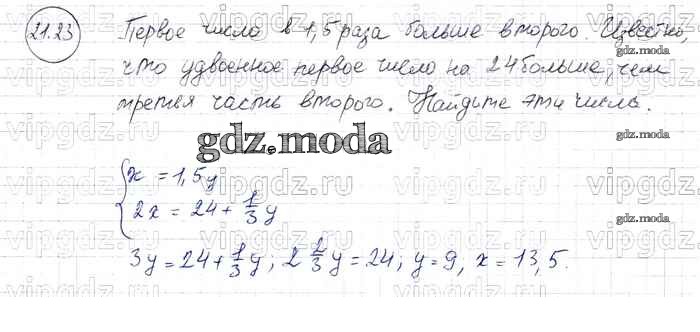 21.23
Первое число в 1,5 раза больше второго. Известно,
gdz.moda
что удвоенное первое число на 24 больше, чем
третья часть второго. Найдите эти числа.
gdz.moda
gdz.moda
x = 1,5y
2x = 24 + 1/3 y
gdz.moda
3y = 24 + 1/3 y; 2 2/3 y = 24; y = 9, x = 13,5.
gdz.moda
vipgdz